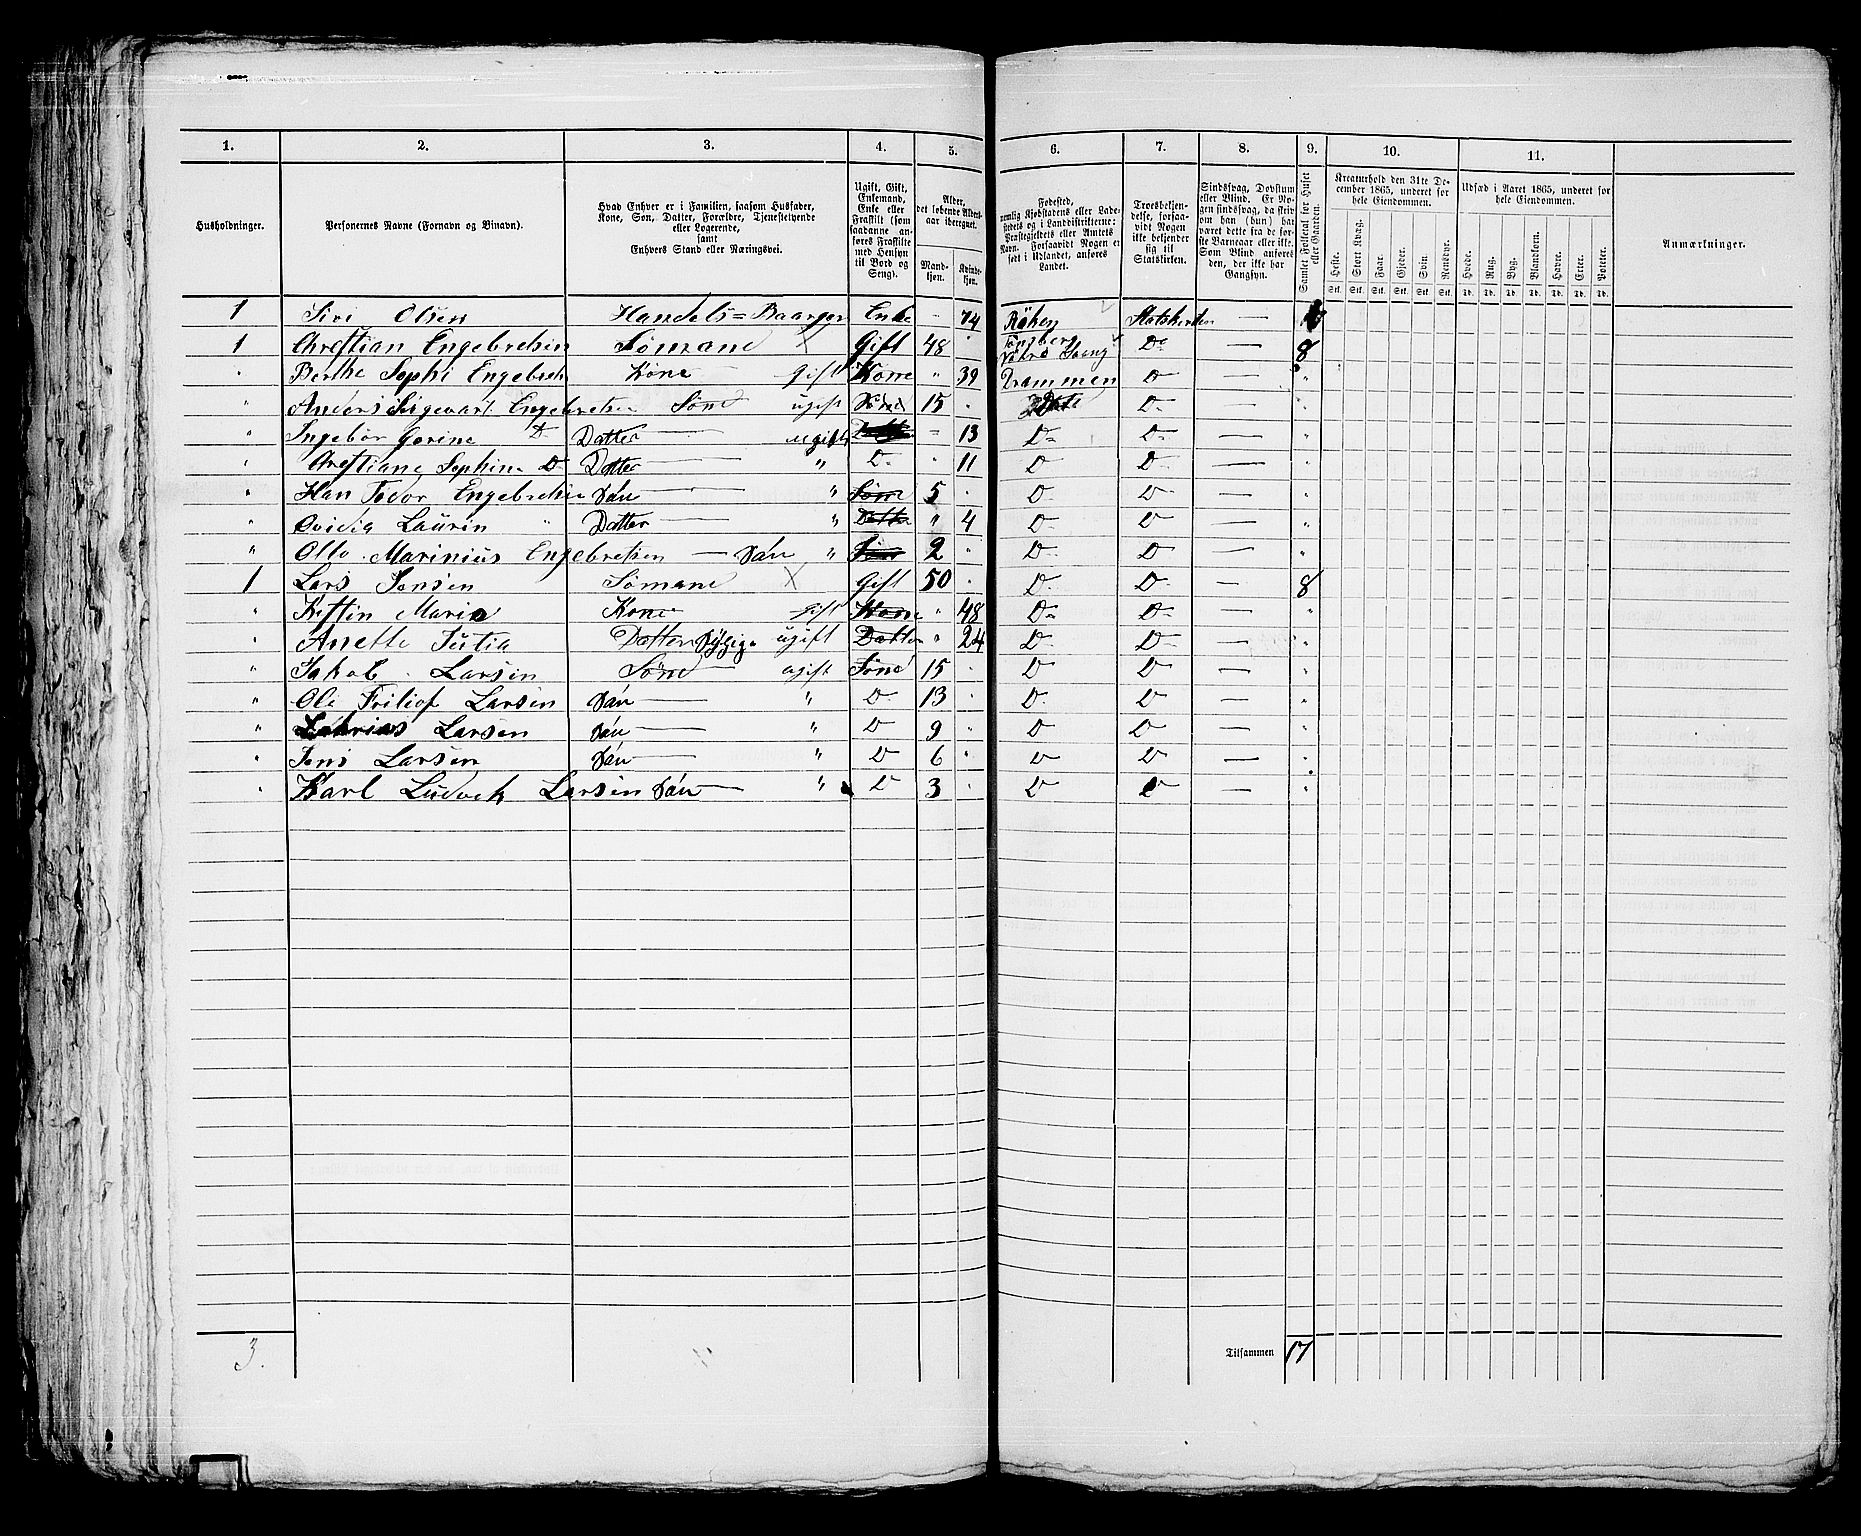 1. 2. 3. 4. 5. 6. 7. 8. 9. 10. 11.
Husholdninger.
Personernes Navne (Fornavn og Binavn).
Hvad Enhver er i Familien, saasom Husfader,
Kone, Søn, Datter, Forældre, Tjenestetyende
eller Logerende,
samt
Enhvers Stand eller Næringsvei.
Ugift, Gift,
Enkemand,
Enke eller
Fraskilt (som
saadanne an-
føres Fraskilte
med Hensyn
til Bord og
Seng).
Alder,
det løbende Alders-
aar iberegnet.
Mand-
kjøn.
Kvinde-
kjøn.
Fødested,
nemlig Kjøbstadens eller Lade-
stedets og i Landdistrikterne:
Præstegjeldets eller Amtets
Navn. Forsaavidt Nogen er
født i Udlandet, anføres
Landet.
Troesbekjen-
delse, forsaa-
vidt Nogen
ikke bekjender
sig til
Statskirken.
Sindssvag, Døvstum
eller Blind. Er No-
gen sindssvag, da skriv
om han (hun) har
været dette fra de før-
ste Barneaar eller ikke.
Som Blind anføres
den, der ikke har
Gangsyn.
Samlet Folketal for Huset
eller Gaarden.
Kreaturhold den 31te De-
cember 1865, underet for
hele Eiendommen.
Heste. Stort Kvæg. Faar. Gjeder. Svin. Rensdyr.
Stk. Stk. Stk. Stk. Stk. Stk.
Udsæd i Aaret 1865, underet for
hele Eiendommen.
Hvede. Rug. Byg. Blandkorn. Havre. Erter. Poteter.
Td. Td. Td. Td. Td. Td. Td.
Anmærkninger.
1 Sivi Olsen Handels=Baarger Enke " 74 Röken Statskirken — 1
1 Chrestian Engebretsen Sömand X Gift 48 " Tönsberg D° — 8
" Berthe Sophi Engebretsen Kone gift Kone " 39 Drammen D — "
" Anders Sigevart Engebretsen Sönd ugift Sönd 15 " D — "
" Ingebor Gorine D° Datter ugift " 13 D° D° — "
" Chrestiane Sophin D° Datter " D " 11 D D — "
" Han Todor Engebretsen Sön " Sönd 5 " D D — "
" Ovidia Laurin " Datter " Datter " 4 D D — "
" Otto Marinius Engebretsen — Sön " 2 " D D — "
1 Lars Jensen Sömand X Gift 50 " D D — 8
" Kestin Maria Kone gift Kone " 48 D D — "
" Anette Jutia Datter ugift Datter " 24 D D — "
" Jakob Larsen Sönd ugift Sönd 15 " D D — "
" Ole Fritiof Larsen Sön " D 13 " D D — "
" Larsen Sön " D 9 " D D — "
" Jens Larsen Sön " D 6 " D D — "
" Karl Ludvik Larsen Sön " D 3 " D D — "
3. Tilsammen 17